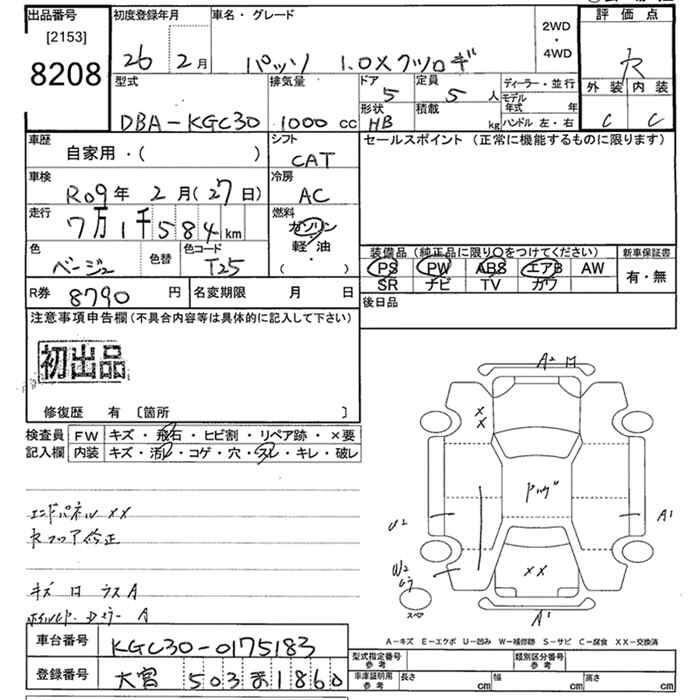 出品番号 初度登録年月 車名・グレード 2WD・4WD 評価点
[2153]
8208 26年 2月 パッソ 1.0X クツロギ R
型式 排気量 ドア 定員 ディーラー・並行 外装 内装
DBA-KGC30 1000 cc 5 5人 モデル年式 年 C C
形状 積載 ハンドル 左・右
HB kg
車歴 シフト セールスポイント (正常に機能するものに限ります)
自家用・( ) CAT
車検 冷房
R09年 2月(27日) AC
走行 燃料
7万1千584 km ガソリン・軽油 ( )
色 色替 色コード 装備品 (純正品に限り○をつけてください) 新車保証書
ベージュ T25 PS PW ABS エアB AW 有・無
SR ナビ TV ガワ
R券 8790円 名変期限 月 日 後日品
注意事項申告欄(不具合内容等は具体的に記入して下さい)
初出品
修復歴 有 [箇所 ]
検査員記入欄 FW キズ・飛石・ヒビ割・リペア跡・×要
内装 キズ・汚レ・コゲ・穴・スレ・キレ・破レ
A2
XX
U2 A1
W2
XX
スペア
A1
エンドパネル XX
R フロア修正
キズ
A
A-キズ E-エクボ U-凹み W-補修跡 S-サビ C-腐食 XX-交換済
車台番号 KGC30-0175183
型式指定番号 参考 類別区分番号 参考
登録番号 大宮 503 ま 1860
車庫証明用 参考 長さ cm 幅 cm 高さ cm